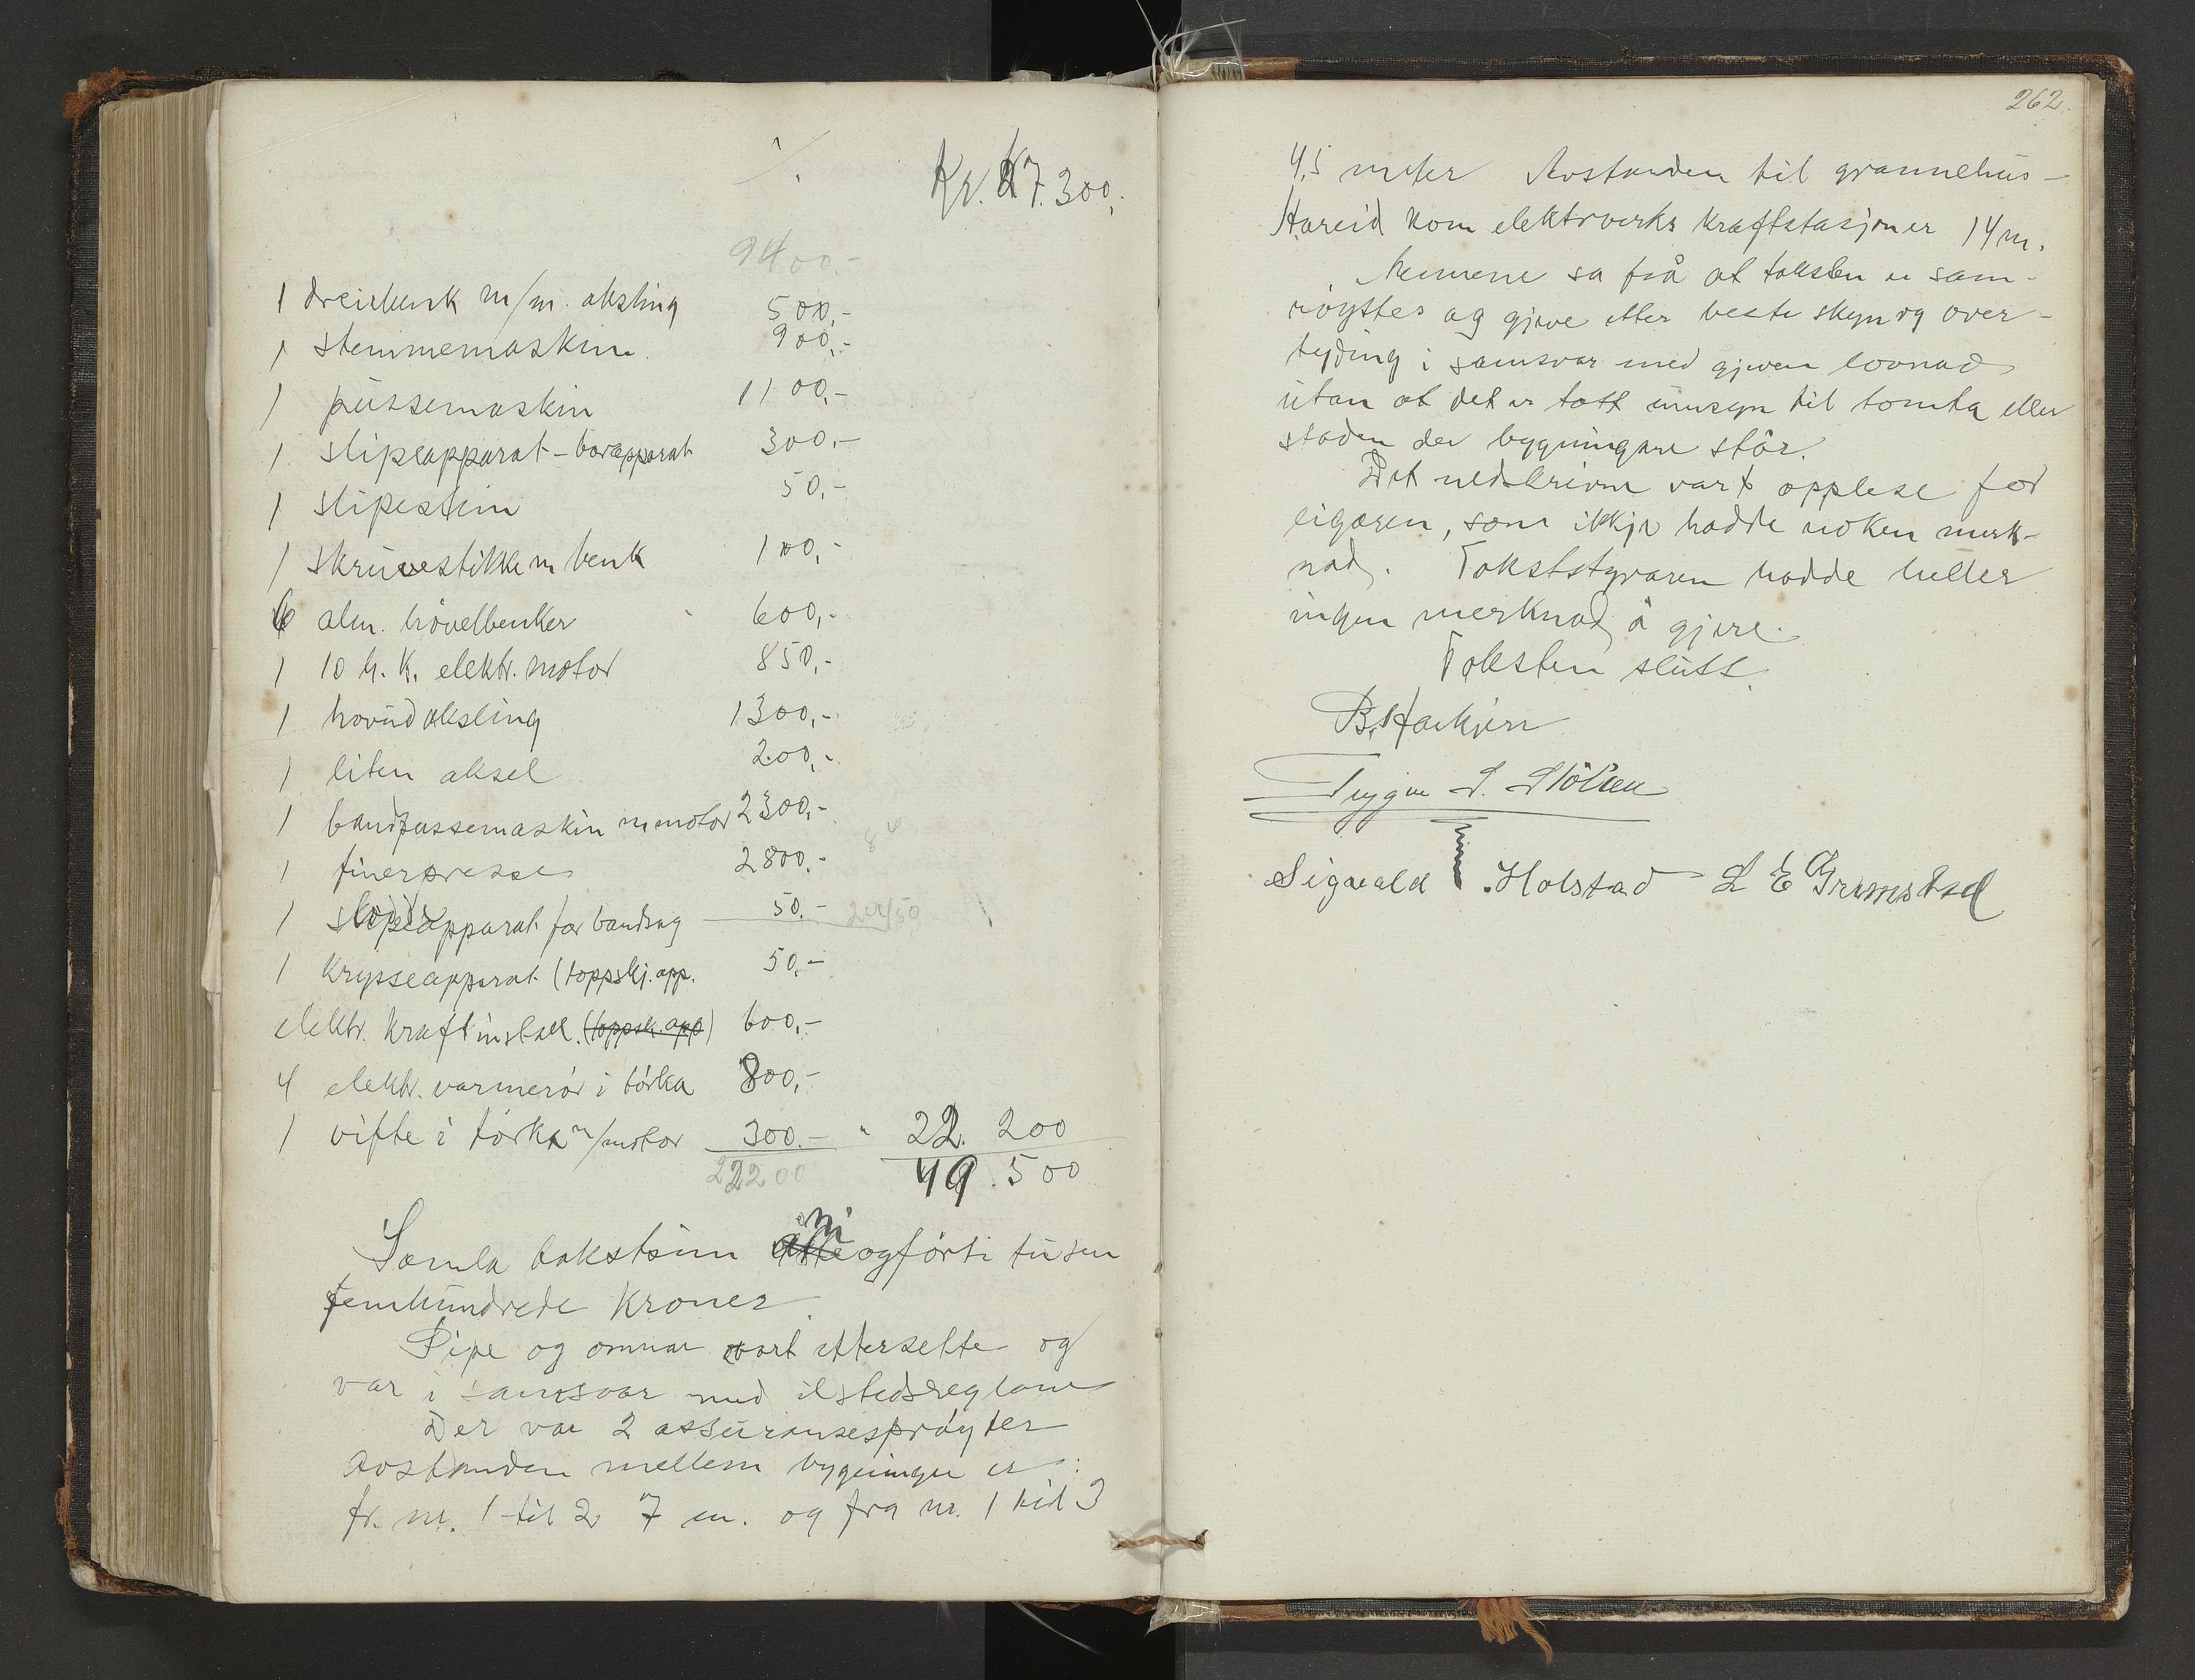 Kr. 27.300,-
9400,-
1 dreiebenk m/m. aksling 500,-
1 stemmemaskin. 900,-
1 pussemaskin 1100,-
1 slipeapparat - borapparat 300,-
1 slipestein 50,-
1 skruvestikke m benk 100,-
6 alm. hövelbenker 600,-
1 10 h.k. elektr. motor 850,-
1 hovudaksling 1300,-
1 liten aksel 200,-
1 bandpussemaskin m motor 2300,-
1 finerpresse 2800,-
1 apparat for bandsag 50,- 20450
1 krysseapparat (toppskj. app. 50,-
elektr. kraftinstall. (toppsk. app) 600,-
4 elektr. varmerör i törka 800,-
1 vifte i törka m/motor 300,- " 22.200
22200 49.500
Samla takstsum åtte ni ogförti tusen
femhundrede kroner.
Pipe og omnar vart ettersette og
var i samsvar med ilstedsreglane
Der var 2 assuransesprøyter
Avstanden mellem bygningene er:
fr. nr. 1 til 2 7 m. og fra nr. 1 til 3
262.
4,5 meter Avstanden til grannehus -
Hareid kom elektrverks kraftstasjon er 14 m.
Mennene sa frå at taksten er sam-
røystes og gjeve etter beste skyn og over-
tyding i samsvar med gjeven lovnad
utan at det er tatt umsyn til tomta eller
staden der bygningane står.
Det nedskrivne vart opplese for
eigaren, som ikkje hadde noken merk-
nad. Takststyraren hadde heller
ingen merknad å gjere.
Taksten slutt.
B. Hareide
Trygve S. Stöllen
Sigvald Holstad L E Grimstad